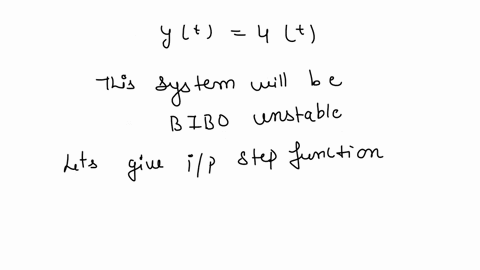 y(t) = 4(t)
This system will be
BIBO unstable
Lets give i/p step function